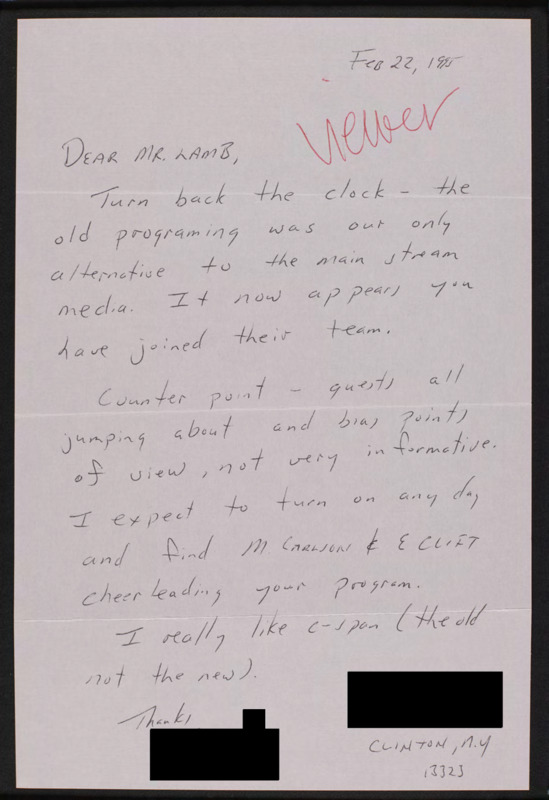 Feb 22, 1995
viewer
Dear Mr. Lamb,
Turn back the clock – the
old programing was our only
alternative to the main stream
media. It now appears you
have joined their team.
Counter point – guests all
jumping about and bias points
of view, not very informative.
I expect to turn on any day
and find M Carlson & E Clift
cheerleading your program.
I really like c-span (the old
not the new).
Thanks
Clinton, N.Y
13323